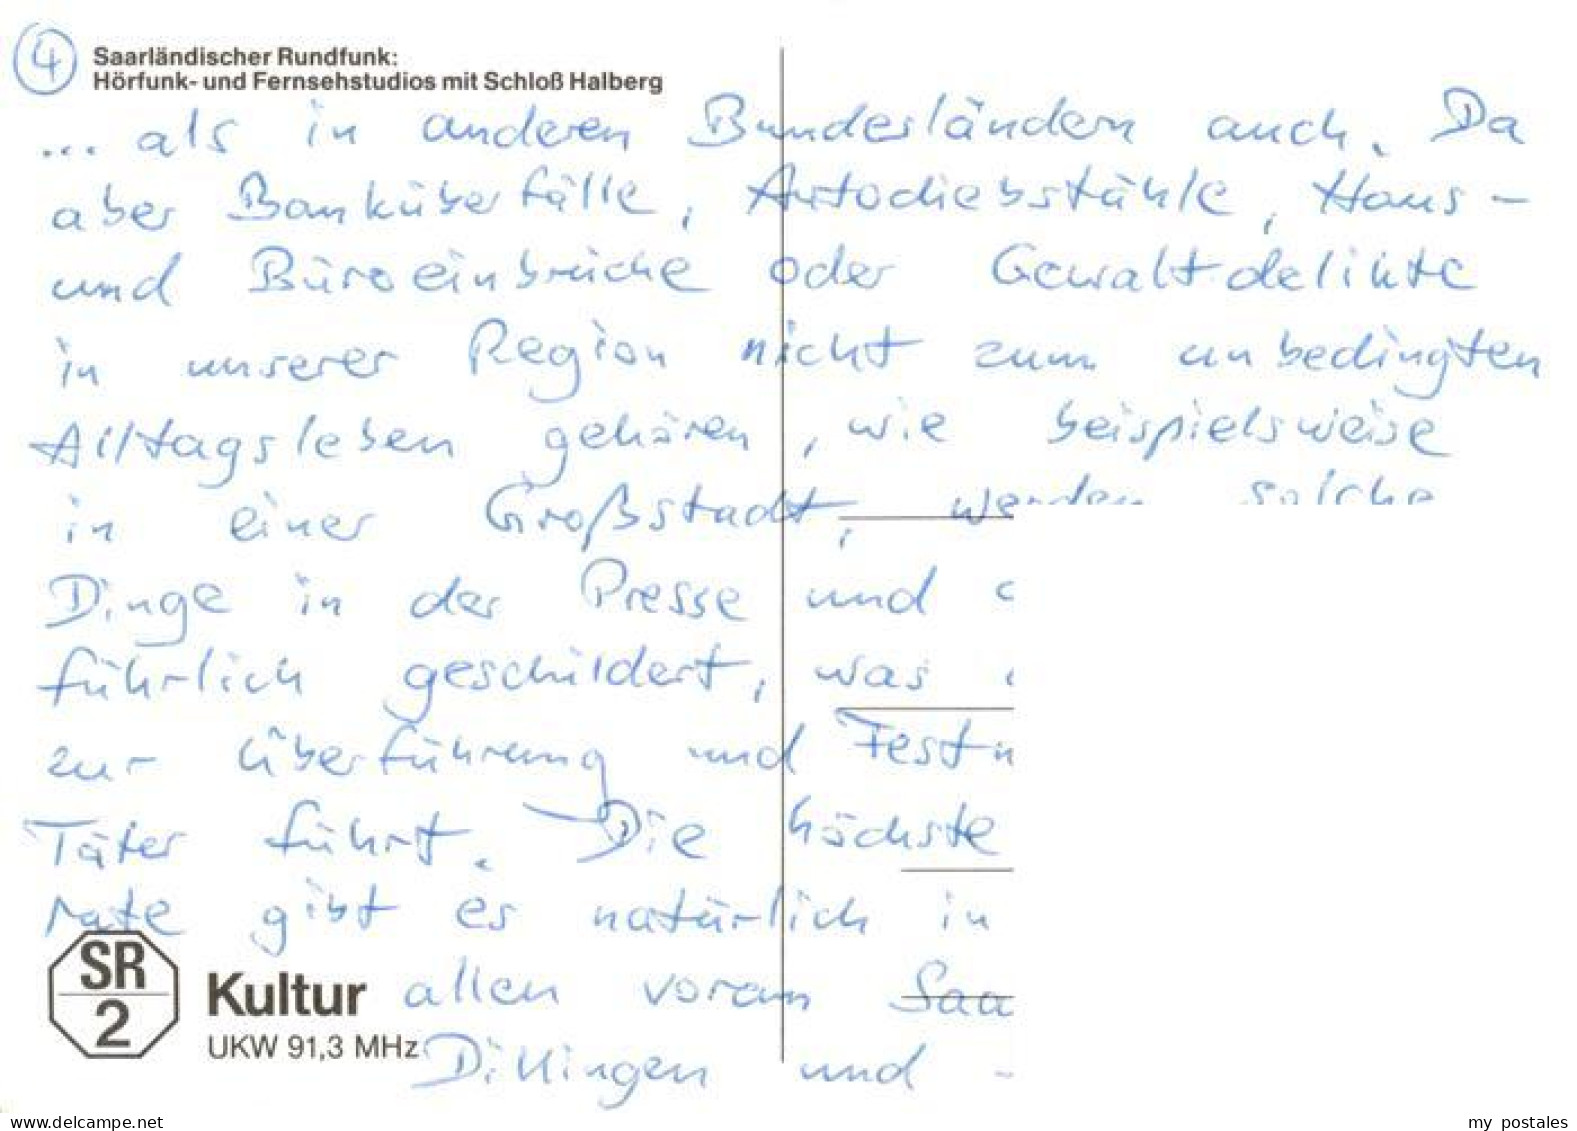 4
Saarländischer Rundfunk:
Hörfunk- und Fernsehstudios mit Schloß Halberg
... als in anderen Bundesländern auch. Da
aber Banküberfälle, Autodiebstähle, Haus-
und Büroeinbrüche oder Gewaltdelikte
in unserer Region nicht zum unbedingten
Alltagsleben gehören, wie beispielsweise
in einer Großstadt, werden solche
Dinge in der Presse und
führlich geschildert, was
zur Überführung und Festn
Täter führt. Die höchste
rate gibt es natürlich in
allen voran Saa
Dillingen und
SR
2
Kultur
UKW 91,3 MHz
www.delcampe.net
my postales